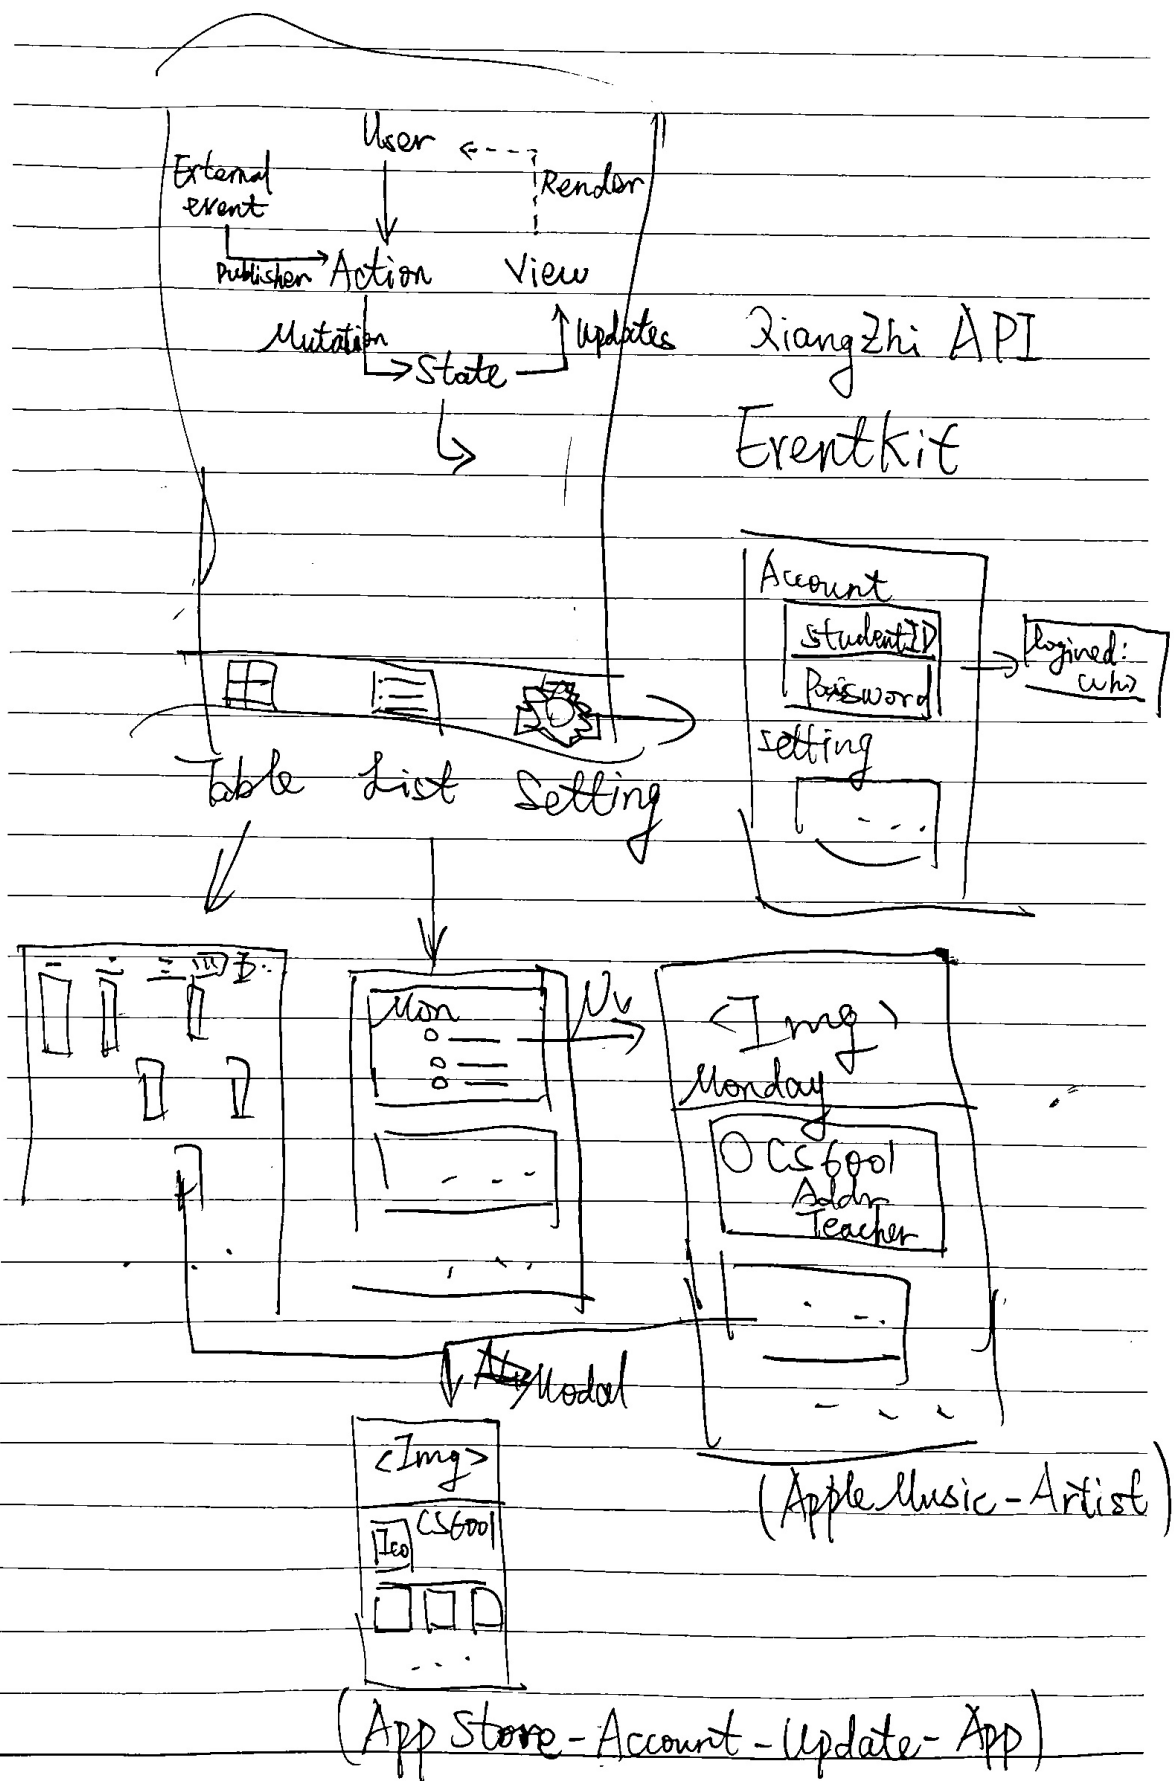 User
External
event
Render
Publisher
Action
View
Mutation
Updates
State
QiangZhi API
EventKit
Account
studentID
Password
logined:
who
setting
Table List Setting
一 二 三 四 五
Mon
Nv
<Img>
Monday
CS6001
Addr
Teacher
Modal
<Img>
CS6001
Ico
(Apple Music-Artist)
(App Store-Account-Update-App)